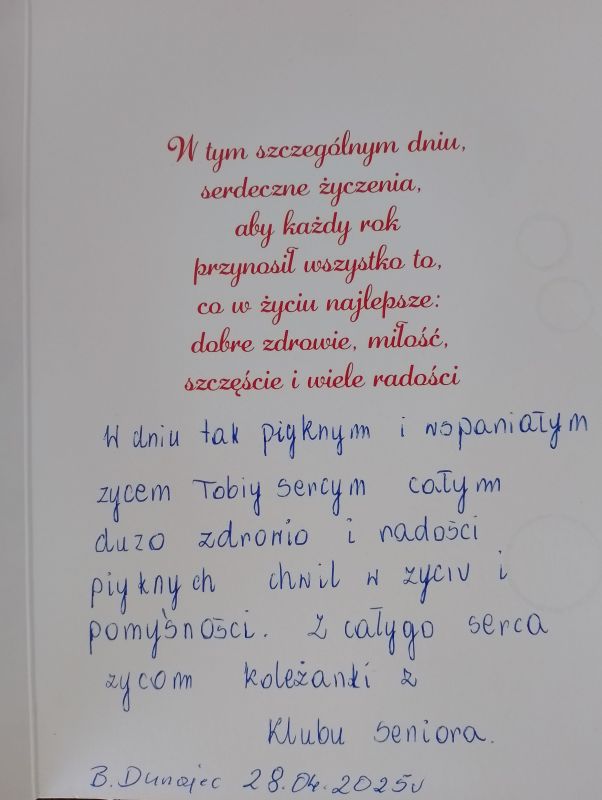 W tym szczególnym dniu,
serdeczne życzenia,
aby każdy rok
przynosił wszystko to,
co w życiu najlepsze:
dobre zdrowie, miłość,
szczęście i wiele radości
W dniu tak piyknym i wspaniałym
zycem Tobiy sercym całym
duzo zdrowio i radości
piyknych chwil w zyciu i
pomyśności. Z całygo serca
zycom koleżanki z
Klubu Seniora.
B. Dunajec 28.04.2025r